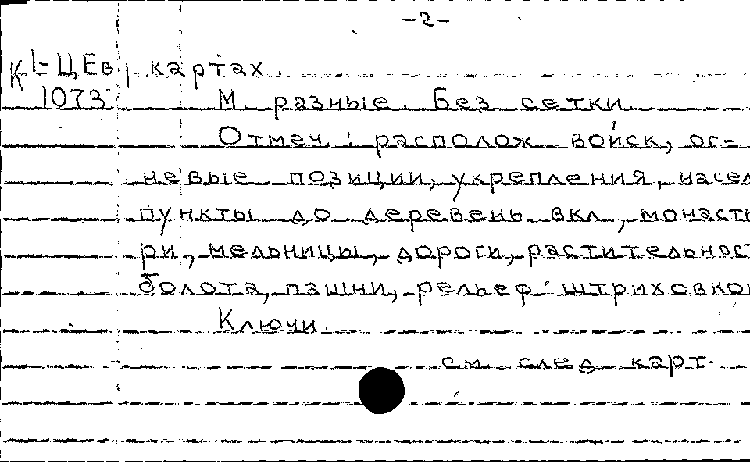 -2-
К 1-ЦЕв картах
1073 М. разные. Без сетки.
Отмеч.: располож. войск, ог-
невые позиции, укрепления, насел
пункты до деревень вкл., монасты
ри, мельницы, дороги, растительност
болота, пашни, рельеф штриховкой
Ключи.
см. след. карт.